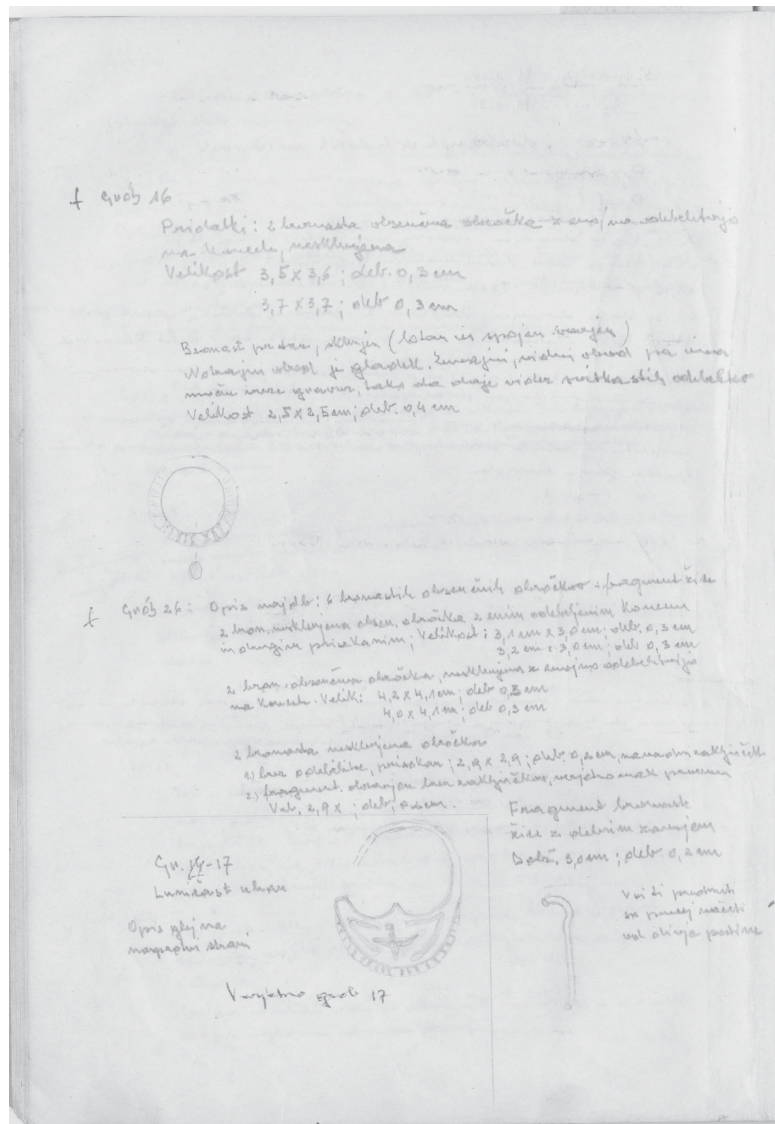 Grob 16
Pridatki: 2 bronasta obsenčna obročka z odebelitvijo
na koncih, nesklenjena
Velikost 3,5 x 3,6; deb. 0,3 cm
3,7 x 3,7; deb 0,3 cm
Bronast prstan, sklenjen (
Notranji obod je gladek. Zunanji, vidni obod pa ima
gravur, tako da daje videz odebelitev
Velikost 2,5 x 2,5 cm; deb. 0,4 cm
Grob 26: Opis najdb: 6 bronastih obsenčnih obročkov + fragment žice
2 bron. nesklenjena obsen. obročka z enim odebeljenim koncem
in drugim prisekanim; Velikost: 3,1 cm x 3,0 cm; deb. 0,3 cm
3,2 cm x 3,0 cm; deb 0,3 cm
2 bron. obsenčna obročka, nesklenjena z odebelitvijo
na koncih. Velik: 4,2 x 4,1 cm; deb 0,3 cm
4,0 x 4,1 cm; deb 0,3 cm
2 bronasta nesklenjena obročka
1) brez odebelitve, prisekan; 2,9 x 2,9; deb 0,2 cm,
2) fragment, ohranjen brez zaključkov, verjetno enak
Vel. 2,9 x ; deb. 0,2 cm.
Fragment bronaste
žice z debelim
Dolž. 3,0 cm; deb 0,2 cm
Gr. 17
Luničast uhan
Opis glej na
nasprotni strani
Vsi ti predmeti
so precej načeti
od patine
Verjetno grob 17